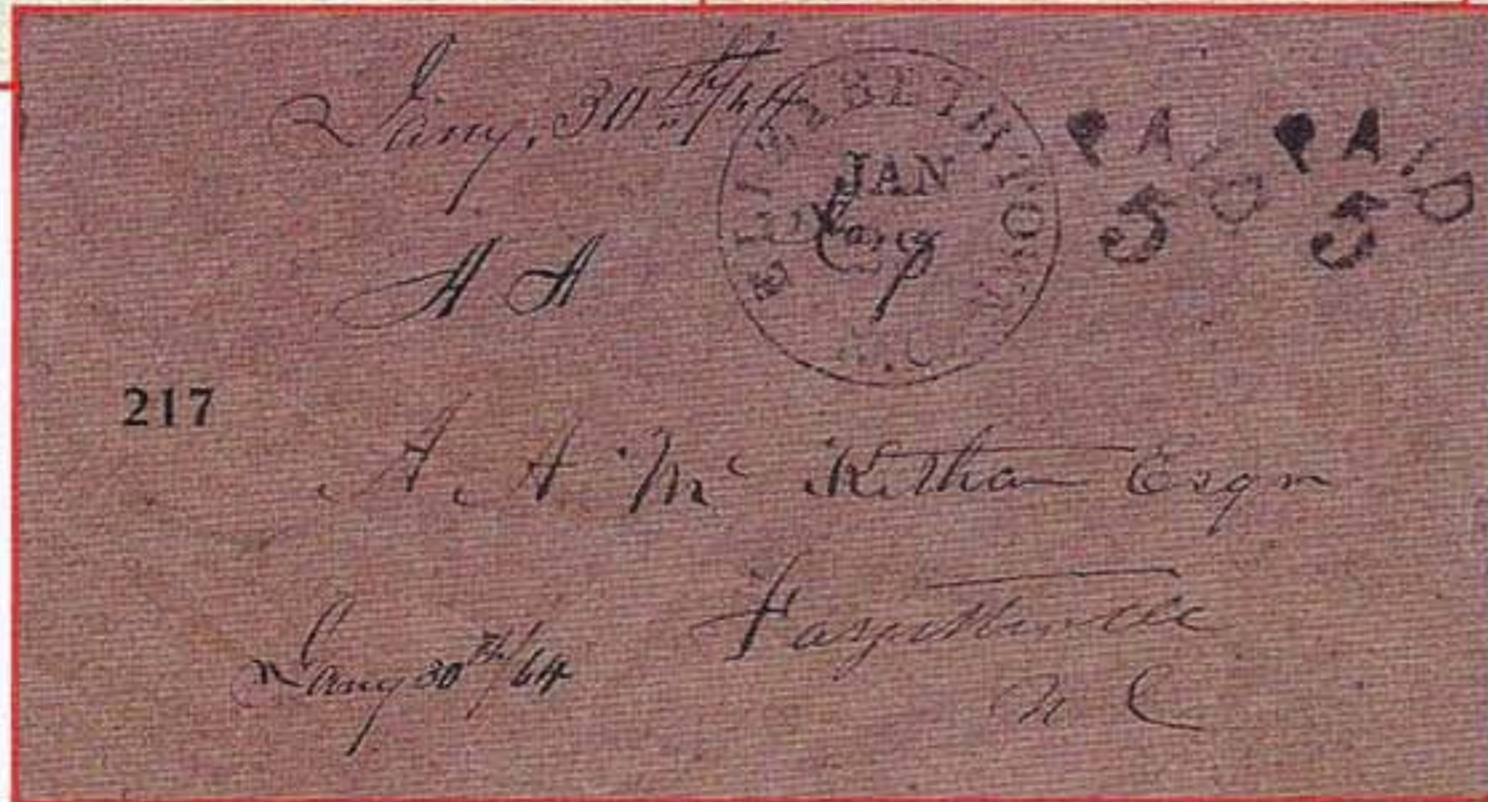 Jany. 30th/64
ELIZABETHTOWN
JAN
N.C.
PAID PAID
5 5
A A
217
A. A. Mc Kethan Esqr
Fayetteville
N C
Jany 30th/64